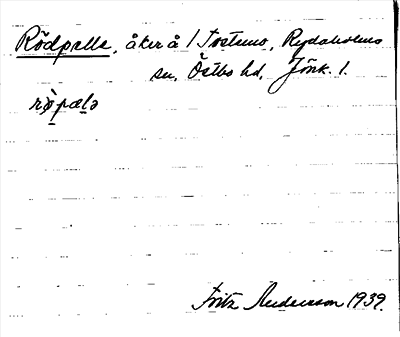 Rödpelle, åker å 1 Tostemo, Rydaholms
sn, Östbo hd, Jönk. l.
rö̀pælə
Fritz Andersson 1939.